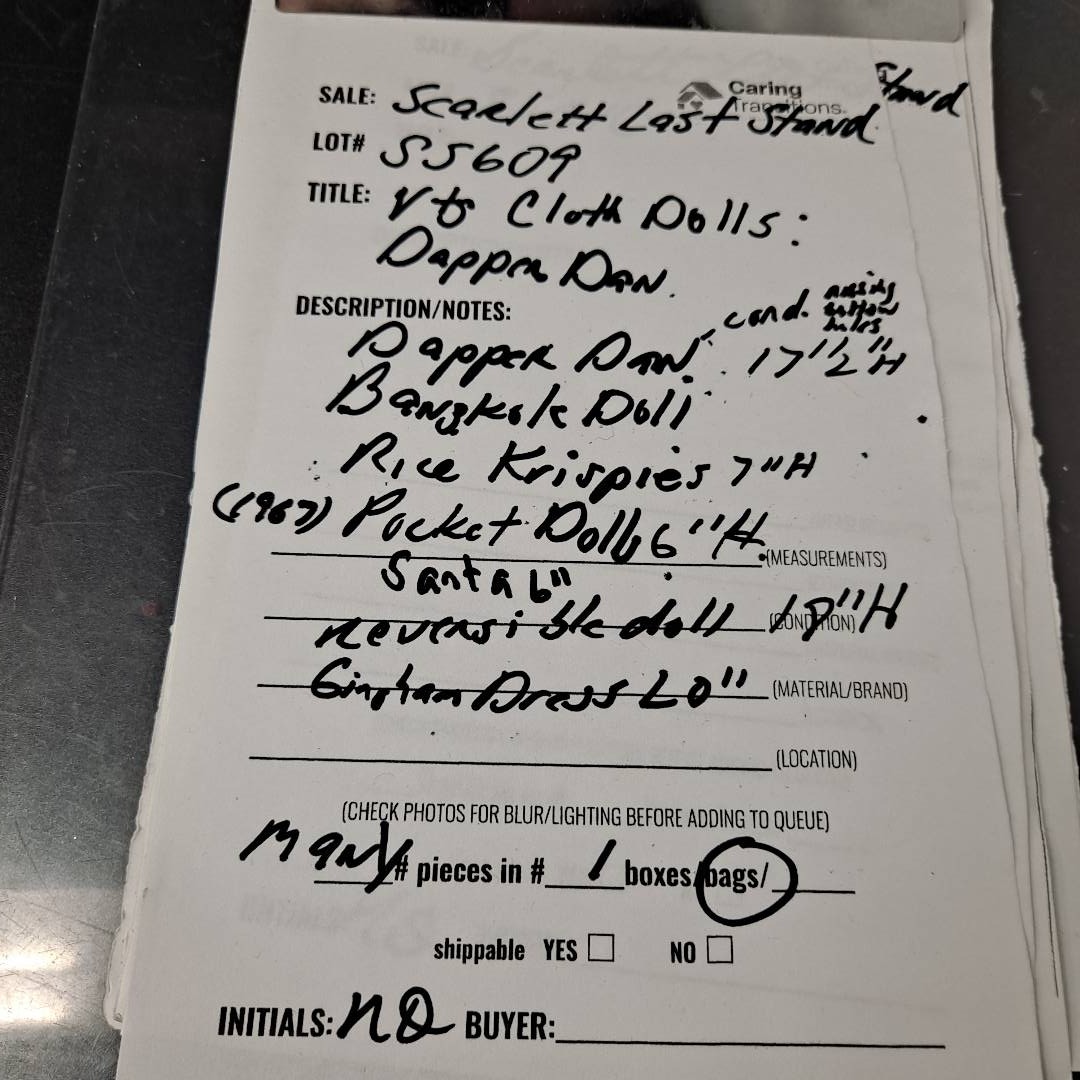 Caring
Transitions.
Stand
SALE: Scarlett Last Stand
LOT# SS609
TITLE: Vtg Cloth Dolls:
Dapper Dan.
DESCRIPTION/NOTES:
cond. missing
Dapper Dan. 17 1/2"H
Bangkok Doll
Rice Krispies 7"H
(1967) Pocket Dolls 6"H
(MEASUREMENTS)
Santa 6"
reversible doll 18"H
(CONDITION)
Gingham Dress 20"
(MATERIAL/BRAND)
(LOCATION)
(CHECK PHOTOS FOR BLUR/LIGHTING BEFORE ADDING TO QUEUE)
many # pieces in # 1 boxes/bags/
shippable YES NO
INITIALS: ND BUYER: